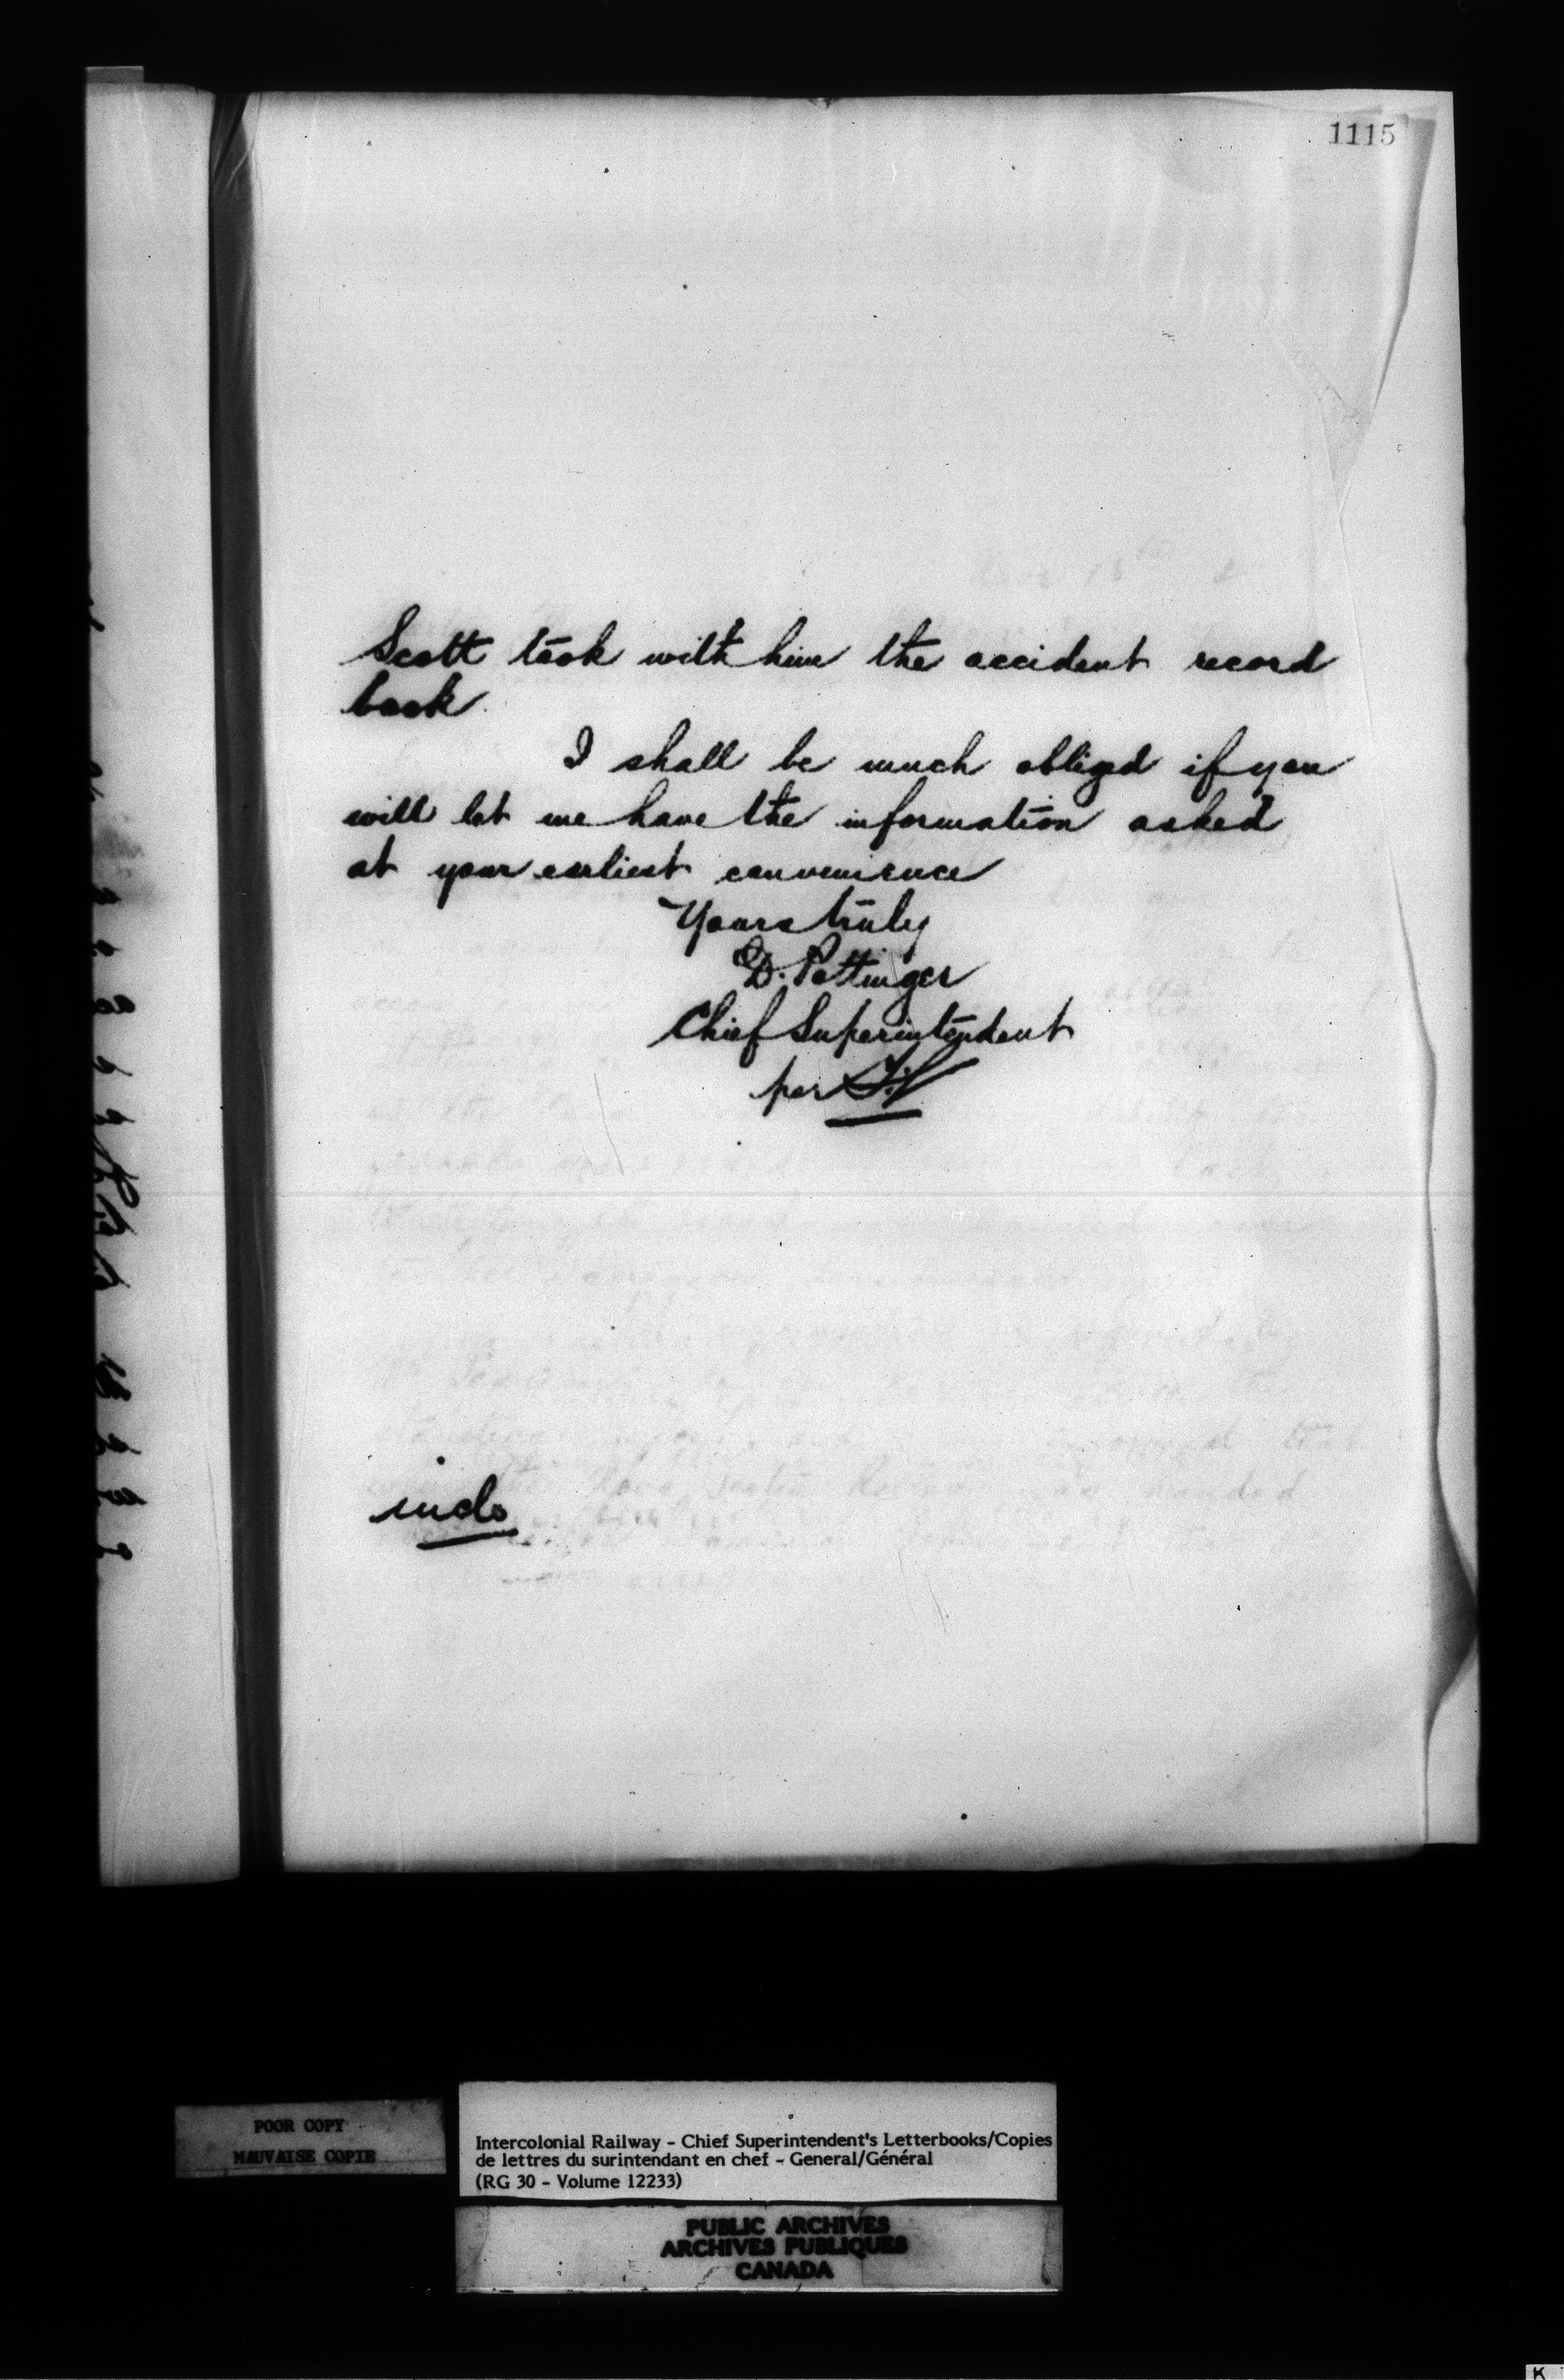 1115
Scott took with him the accident record
book.
I shall be much obliged if you
will let me have the information asked
at your earliest convenience
Yours truly
D. Pottinger
Chief Superintendent
per
incls
POOR COPY
MAUVAISE COPIE
Intercolonial Railway - Chief Superintendent's Letterbooks/Copies
de lettres du surintendant en chef - General/Général
(RG 30 - Volume 12233)
PUBLIC ARCHIVES
ARCHIVES PUBLIQUES
CANADA
K